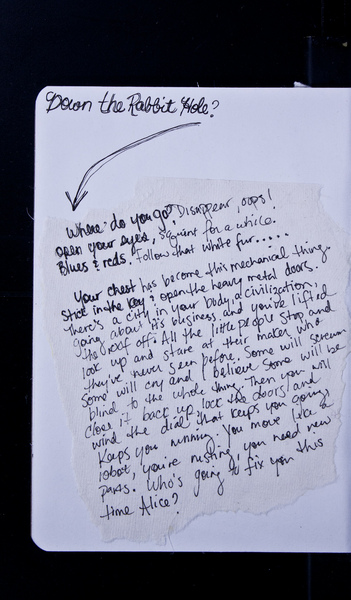 Down the Rabbit Hole?
Where do you go? Disappear, oops!
open your eyes, squint for a while.
Blues & reds. Follow that white fur.....
Your chest has become this mechanical thing.
Stick in the key & open the heavy metal doors.
There's a city in your body, a civilization,
going about its business. and you've lifted
the roof off. All the little people stop and
look up and stare at their maker who
they've never seen before. Some will scream
some will cry and I believe some will be
blind to the whole thing. Then you will
close it back up, lock the doors and
wind the dial that keeps you going
keeps you running. You move like a
robot, you're rusting, you need new
parts. Who's going to fix you this
time Alice?